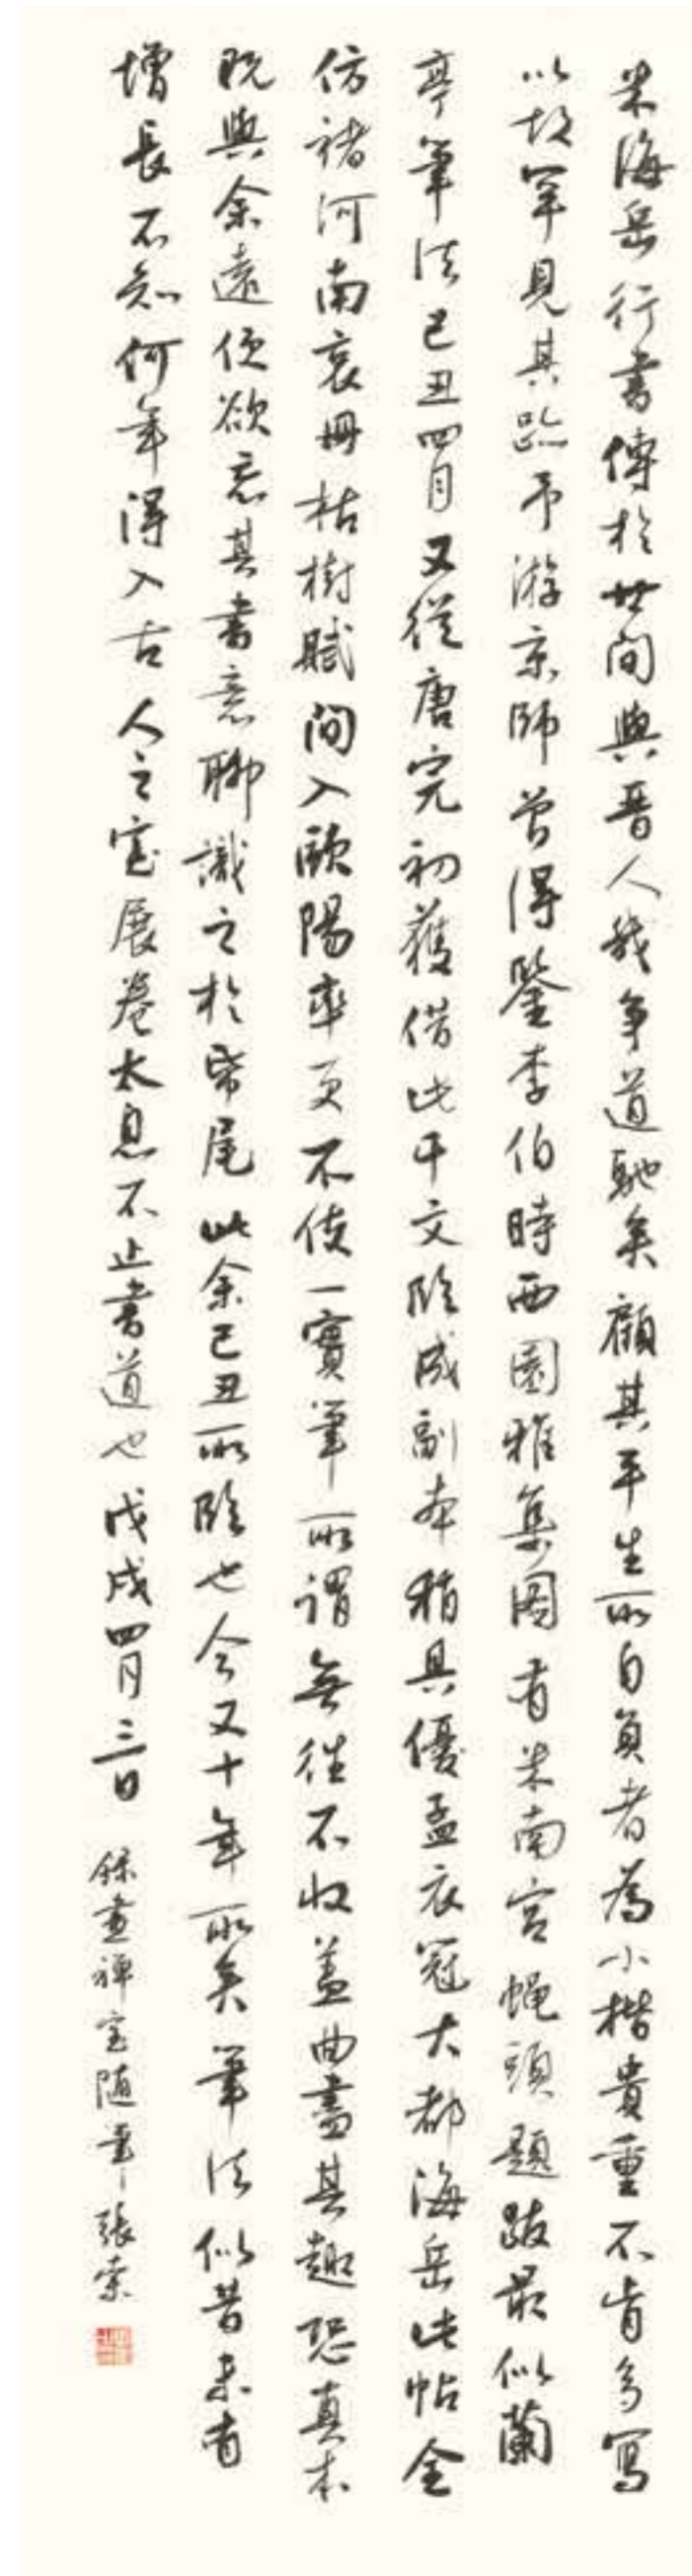 米海岳行書傳於世間與晋人幾争道馳矣顧其平生所自負者為小楷貴重不肯多寫
以故罕見其跡予游京師曾得鑒李伯時西園雅集圖有米南宫蝇頭題跋最似蘭
亭筆法己丑四月又從唐完初獲借此千文臨成副本稍具優孟衣冠大都海岳此帖全
仿褚河南哀冊枯樹賦間入歐陽率更不使一實筆所謂無往不收盖曲盡其趣恐真本
既與余遠便欲忘其書意聊識之於帋尾此余己丑所臨也今又十年所矣筆法似昔未有
增長不知何年得入古人之室展卷太息不止書道也戊戌四月三日
録畫禅室随筆張索